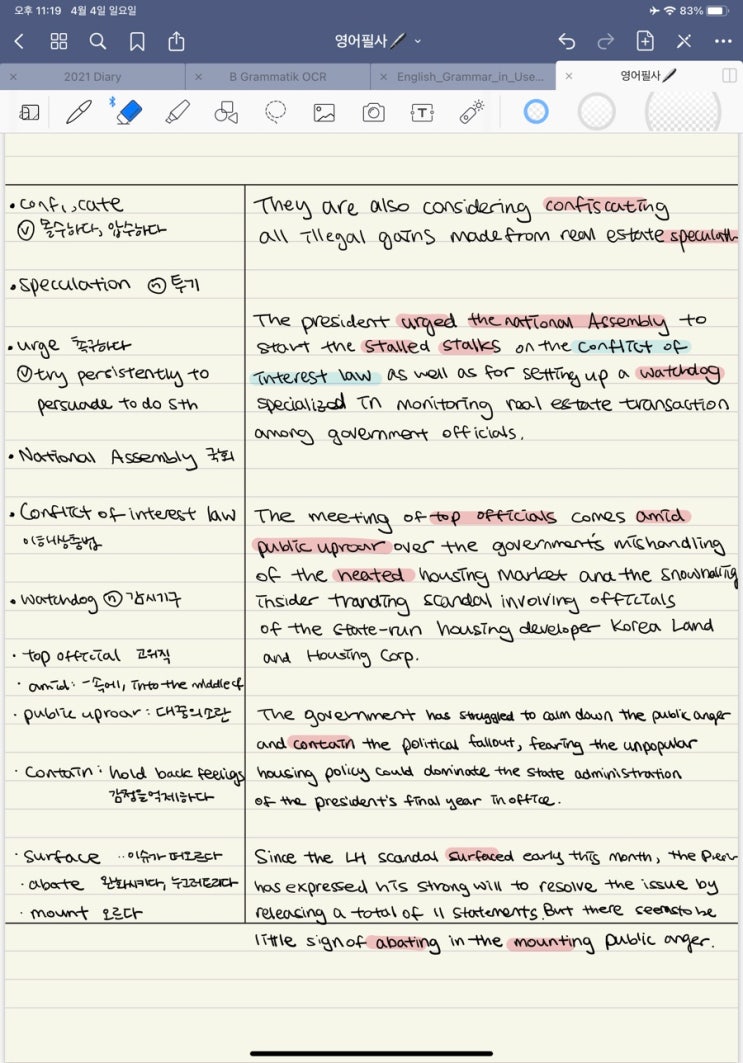 오후 11:19 4월 4일 일요일
83%
영어필사
2021 Diary
B Grammatik OCR
English_Grammar_in_Use...
영어필사
• confiscate
ⓥ 몰수하다, 압수하다
• speculation ⓝ 투기
• urge 촉구하다
ⓥ try persistently to
persuade to do sth
• National Assembly 국회
• Conflict of interest law
이해상충법
• watchdog ⓝ 감시기구
· top official 고위직
· amid : -속에, into the middle of
· public uproar : 대중의 소란
· Contain : hold back feelings
감정을 억제하다
· Surface ·· 이슈가 떠오르다
· abate 완화시키다, 누그러뜨리다
· mount 오르다
They are also considering confiscating
all illegal gains made from real estate speculati
The president urged the national Assembly to
start the stalled stalks on the conflict of
interest law as well as for setting up a watchdog
specialized in monitoring real estate transaction
among government officials.
The meeting of top officials comes amid
public uproar over the government's mishandling
of the heated housing market and the snowballing
insider tranding scandal involving officials
of the state-run housing developer Korea Land
and Housing Corp.
The government has struggled to calm down the public anger
and contain the political fallout, fearing the unpopular
housing policy could dominate the state administration
of the president's final year in office.
Since the LH scandal surfaced early this month, the
has expressed his strong will to resolve the issue by
releasing a total of 11 statements. But there seems to be
little sign of abating in the mounting public anger.